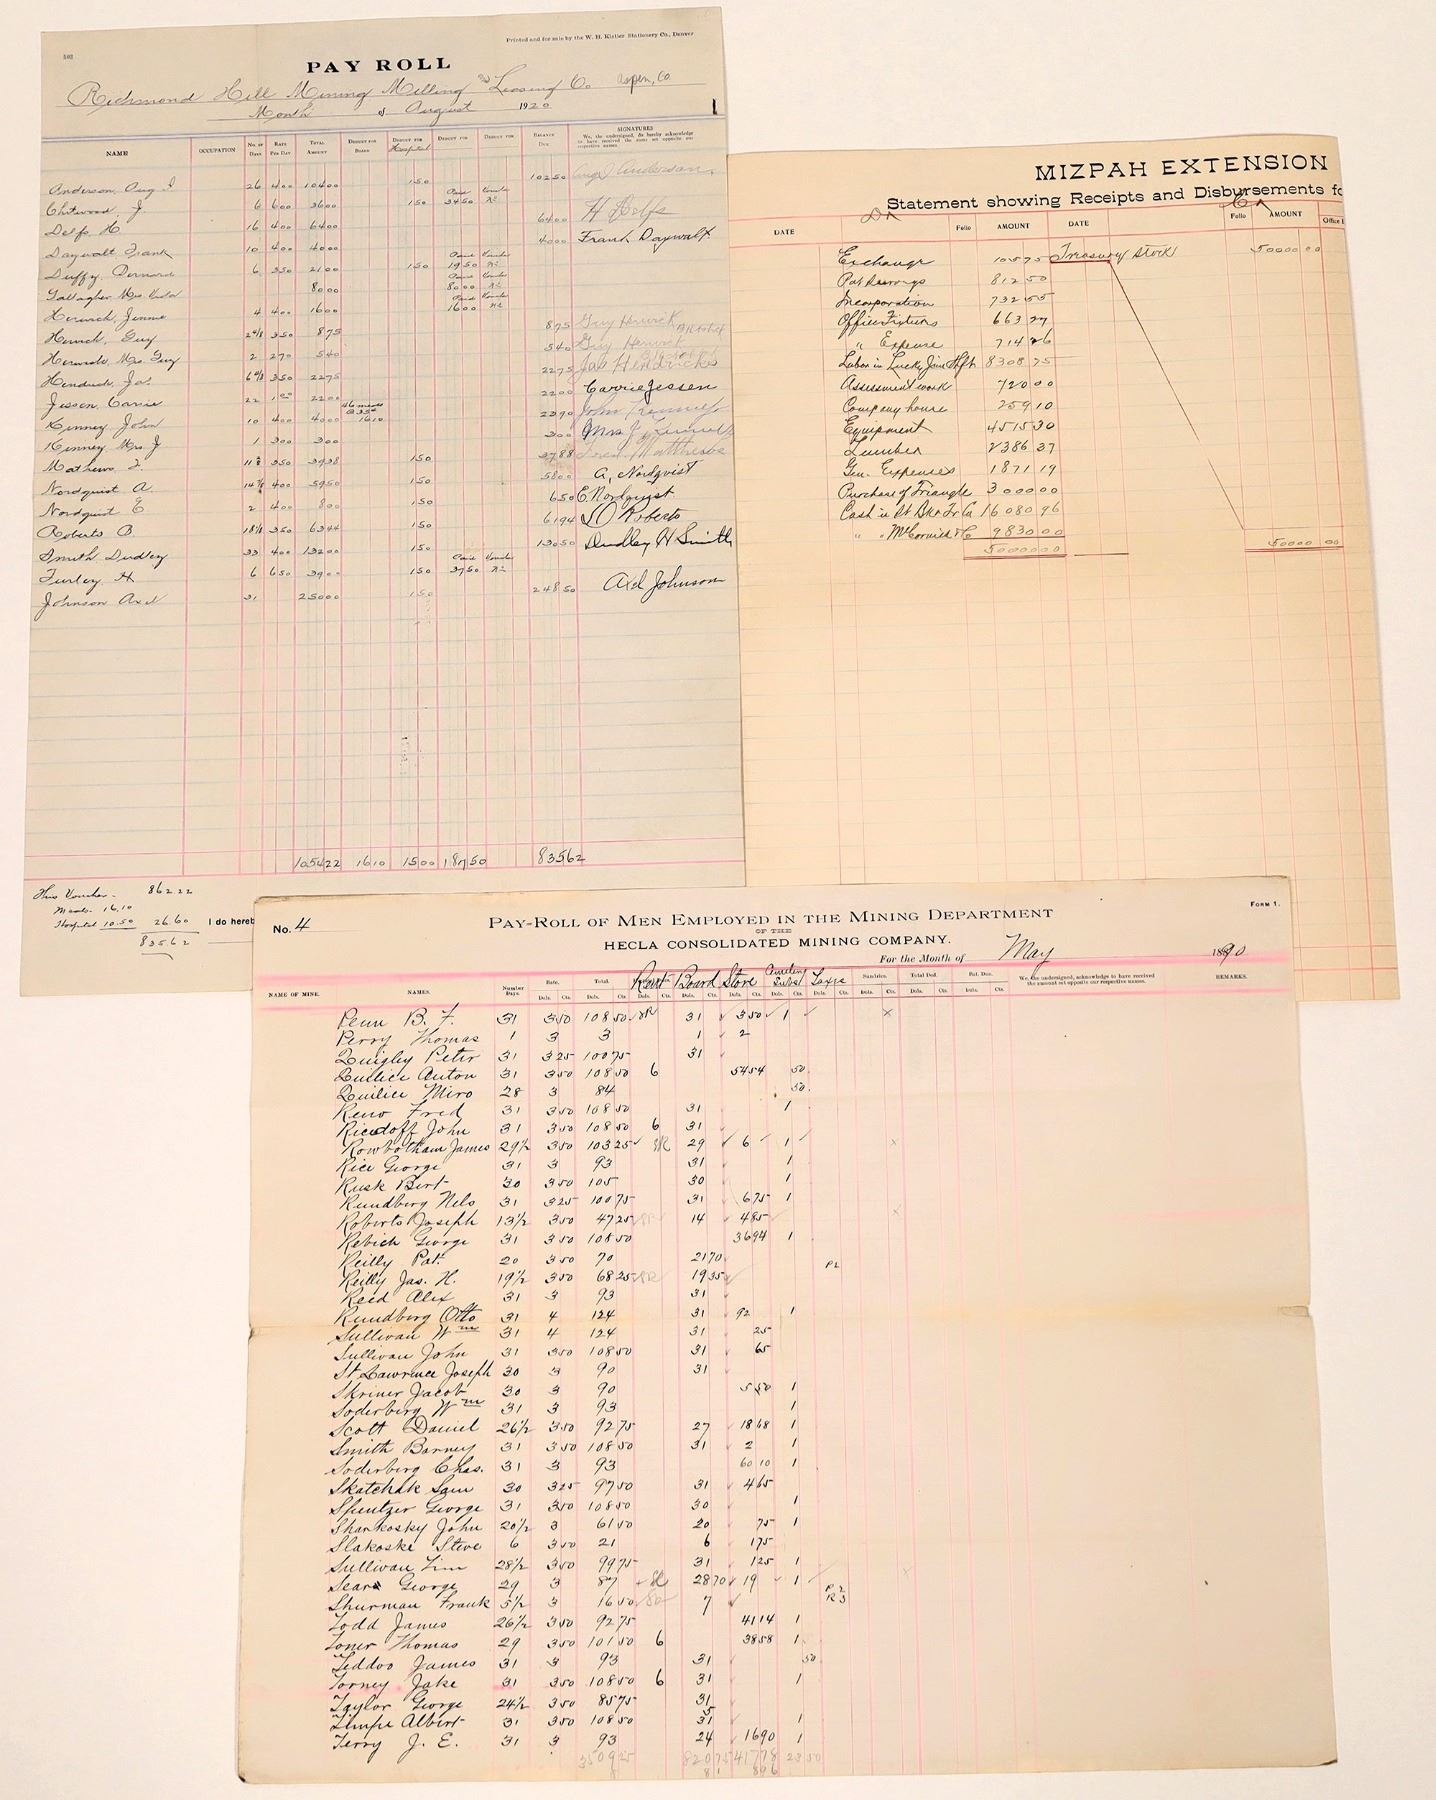 Printed and for sale by the W. H. Kistler Stationery Co., Denver
502
PAY ROLL
Richmond Hill Mining Milling and Leasing Co. Aspen, Co
Month of August 1920
NAME OCCUPATION No. of Days RATE PER DAY TOTAL AMOUNT DEDUCT FOR BOARD DEDUCT FOR Hospital DEDUCT FOR DEDUCT FOR BALANCE DUE SIGNATURES
We, the undersigned, do hereby acknowledge to have received the sums set opposite our respective names.
Anderson, Aug J 26 4 00 104 00 1 50 102 50 Aug J Anderson
Chitwood, J. 6 6 00 36 00 1 50 Paid 34 50 Voucher No
Delfs H 16 4 00 64 00 64 00 H Delfs
Daywalt Frank 10 4 00 40 00 40 00 Frank Daywalt
Duffy, Bernard 6 3 50 21 00 1 50 Paid 19 50 Voucher No
Gallagher, Mrs 80 00 Paid 80 00 Voucher No
Herwick, Jennie 4 4 00 16 00 Paid 16 00 Voucher No
Herwick, Guy 2 4/8 3 50 8 75 8 75 Guy Herwick
Herwick, Mrs. Guy 2 2 70 5 40 5 40 Guy Herwick
Hendrick, Jas. 6 4/8 3 50 22 75 22 75 Jas Hendricks
Jessen, Carrie 22 1 00 22 00 22 00 Carrie Jessen
Kinney, John 10 4 00 40 00 46 meals @ 35¢ 16 10 23 90 John Kinney
Kinney, Mrs. J 1 3 00 3 00 3 00 Mrs J Kinney
Mathews, L. 3 50 39 38 1 50 37 88 Matthews
Nordquist A. 14 7/8 4 00 59 50 1 50 58 00 A. Nordqvist
Nordquist E 2 4 00 8 00 1 50 6 50 E Nordqvist
Roberts B. 18 1/8 3 50 63 44 1 50 61 94 Roberts
Smith Dudley 33 4 00 132 00 1 50 130 50 Dudley H Smith
Turley, H 6 6 50 39 00 1 50 Paid 37 50 Voucher No
Johnson Axel 31 250 00 1 50 248 50 Axel Johnson
1054 22 16 10 15 00 187 50 835 62
This Voucher - 862.22
Meals - 16.10
Hospital 10.50 26.60
835.62
I do hereb
MIZPAH EXTENSION
Statement showing Receipts and Disbursements fo
Dr Cr
DATE Folio AMOUNT DATE Folio AMOUNT Office
Exchange 105 75 Treasury Stock 50000 00
812 50
Incorporation 732 55
Office Fixtures 663 27
" Expense 714 26
Labor in Lucky Jim Shft 8308 75
Assessment work 720 00
Company house 259 10
Equipment 4515 30
Lumber 2386 37
Gen. Expenses 1871 19
Purchase of Triangle 3000 00
Cash in St Bk & Tr Co 16080 96
" " McCornick & Co 9830 00
50000 00 50000 00
No. 4 FORM 1.
PAY-ROLL OF MEN EMPLOYED IN THE MINING DEPARTMENT
OF THE
HECLA CONSOLIDATED MINING COMPANY.
For the Month of May 1890
NAME OF MINE. NAMES. Number Days. Rate. Total. Rent Board Store Subs't Taxes Sundries. Total Ded. Bal. Due. We, the undersigned, acknowledge to have received the amount set opposite our respective names. REMARKS.
Dols. Cts. Dols. Cts. Dols. Cts. Dols. Cts. Dols. Cts. Dols. Cts. Dols. Cts. Dols. Cts. Dols. Cts. Dols. Cts.
Penn B. F. 31 3 50 108 50 SR 31 3 50 1 x
Perry Thomas 1 3 3 1 2
Quigley Peter 31 3 25 100 75 31
Quilici Anton 31 3 50 108 50 6 54 54 50
Quilici Miro 28 3 84 50
Reno Fred 31 3 50 108 50 31 1
Ricotoff John 31 3 50 108 50 6 31
Rowbotham James 29 1/2 3 50 103 25 SR 29 6 1 x
Rice George 31 3 93 31 1
Rusk Bert 30 3 50 105 30 1
Rundberg Nels 31 3 25 100 75 31 6 75 1
Roberts Joseph 13 1/2 3 50 47 25 SR 14 4 85 x
Rebich George 31 3 50 108 50 36 94 1
Reilly Pat. 20 3 50 70 21 70 P2
Reilly Jas. H. 19 1/2 3 50 68 25 SR 19 35
Reed Alex 31 3 93 31
Rundberg Otto 31 4 124 31 92 1
Sullivan Wm 31 4 124 31 25
Sullivan John 31 3 50 108 50 31 65
St Lawrence Joseph 30 3 90 31
Skriner Jacob 30 3 90 5 50 1
Soderberg Wm 31 3 93 1
Scott Daniel 26 1/2 3 50 92 75 27 18 68 1
Smith Barney 31 3 50 108 50 31 2 1
Soderberg Chas. 31 3 93 60 10 1
Skatchak Sam 30 3 25 97 50 31 4 65
Spentzer George 31 3 50 108 50 30 1
Sharkosky John 20 1/2 3 61 50 20 75 1
Slakoske Steve 6 3 50 21 6 1 75
Sullivan Tim 28 1/2 3 50 99 75 31 1 25 1
Sears George 29 3 87 SR 28 70 19 1 P 2
Shurman Frank 5 1/2 3 16 50 SR 7 R 3
Todd James 26 1/2 3 50 92 75 41 14 1
Toner Thomas 29 3 50 101 50 6 38 58 1
Teddoo James 31 3 93 31 50
Torney Jake 31 3 50 108 50 6 31 1
Taylor George 24 1/2 3 50 85 75 31
Timpe Albert 31 3 50 108 50 31 1
Terry J. E. 31 3 93 24 16 90 1
3509 25 820 75 417 78 23 50